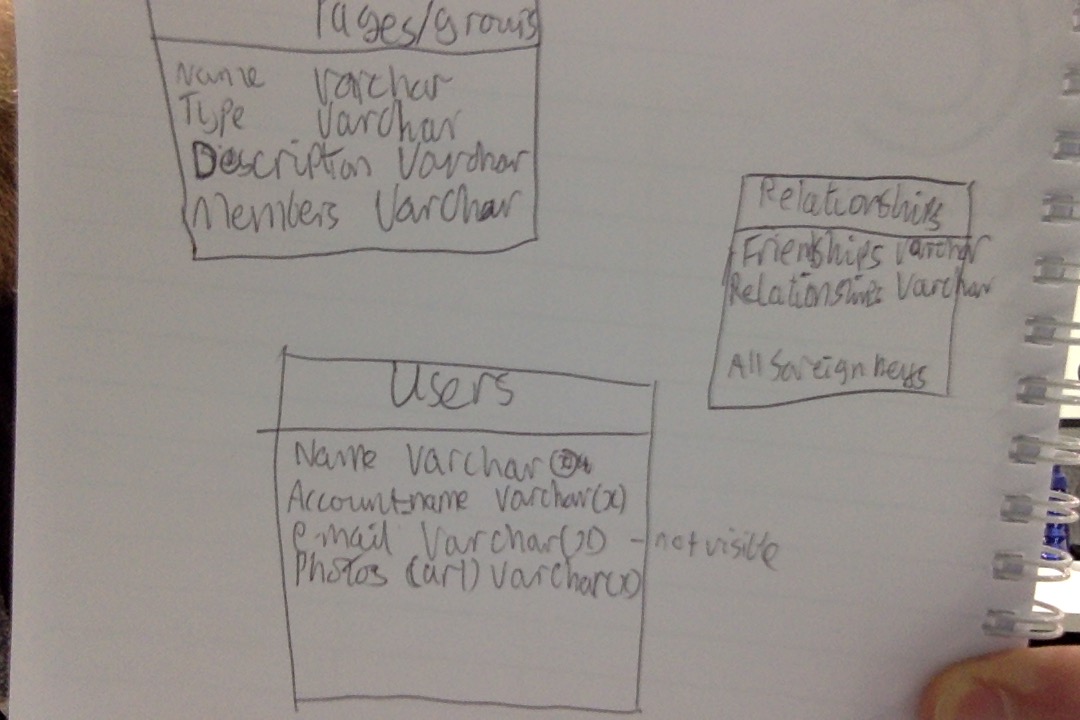 Pages/groups
Name varchar
Type varchar
Description Varchar
Members Varchar
Relationships
Frienships varchar
Relationships Varchar
All foreign keys
Users
Name varchar
Account-name varchar(x)
e-mail Varchar(x) - not visible
Photos (url) varchar(x)